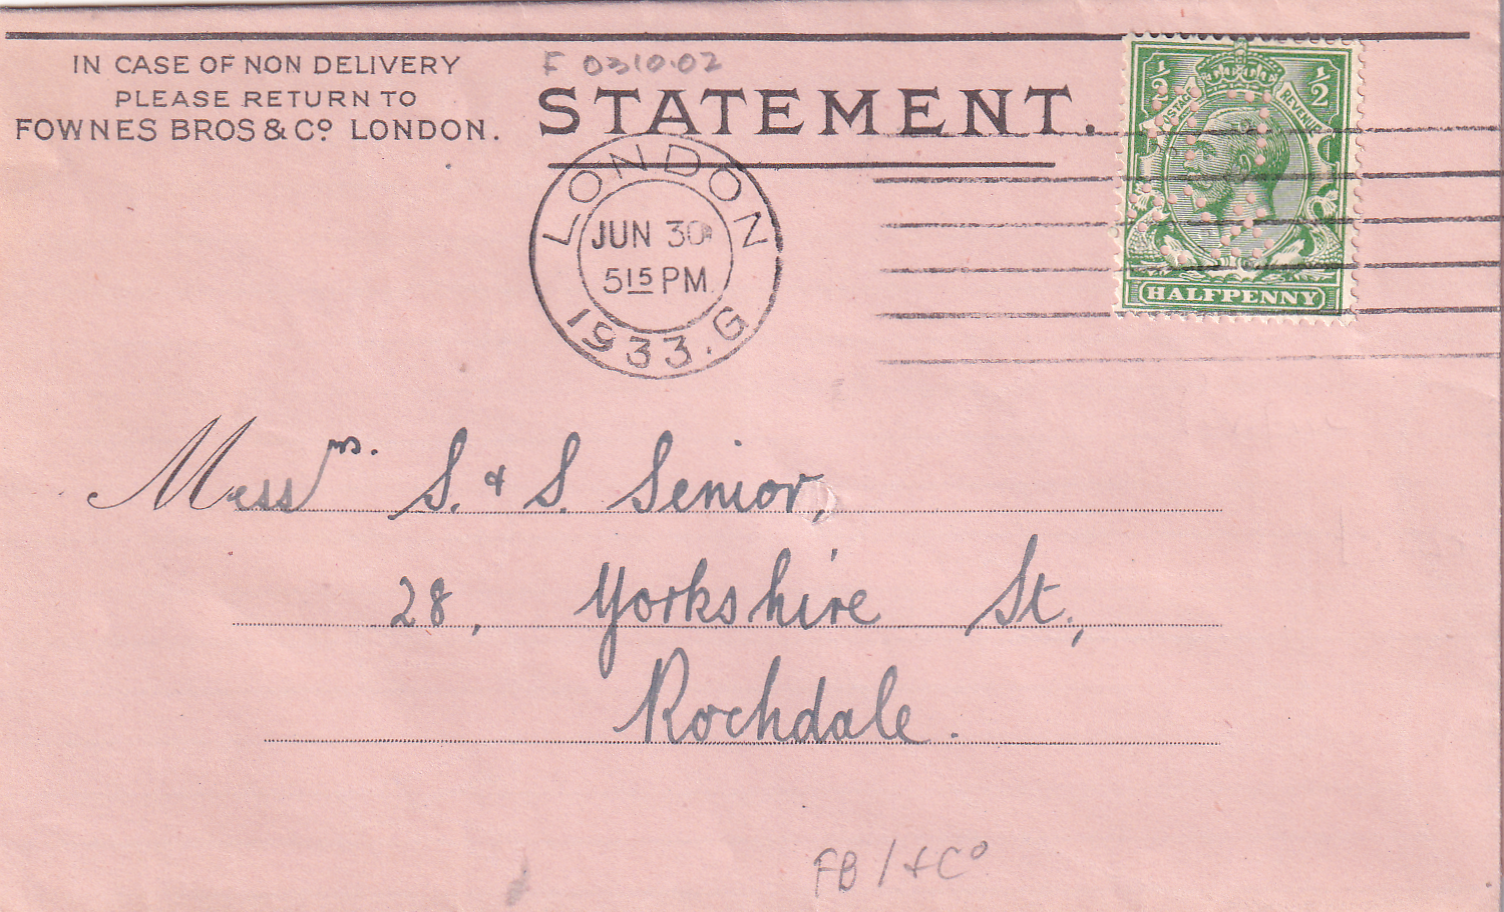 IN CASE OF NON DELIVERY
PLEASE RETURN TO
FOWNES BROS & Cº LONDON.
F 0310.02
STATEMENT.
LONDON
JUN 30
5 15 PM
1933. G
1/2 1/2
POSTAGE REVENUE
HALFPENNY
Messrs. S. & S. Senior,
28, Yorkshire St.,
Rochdale.
FB/+Cº